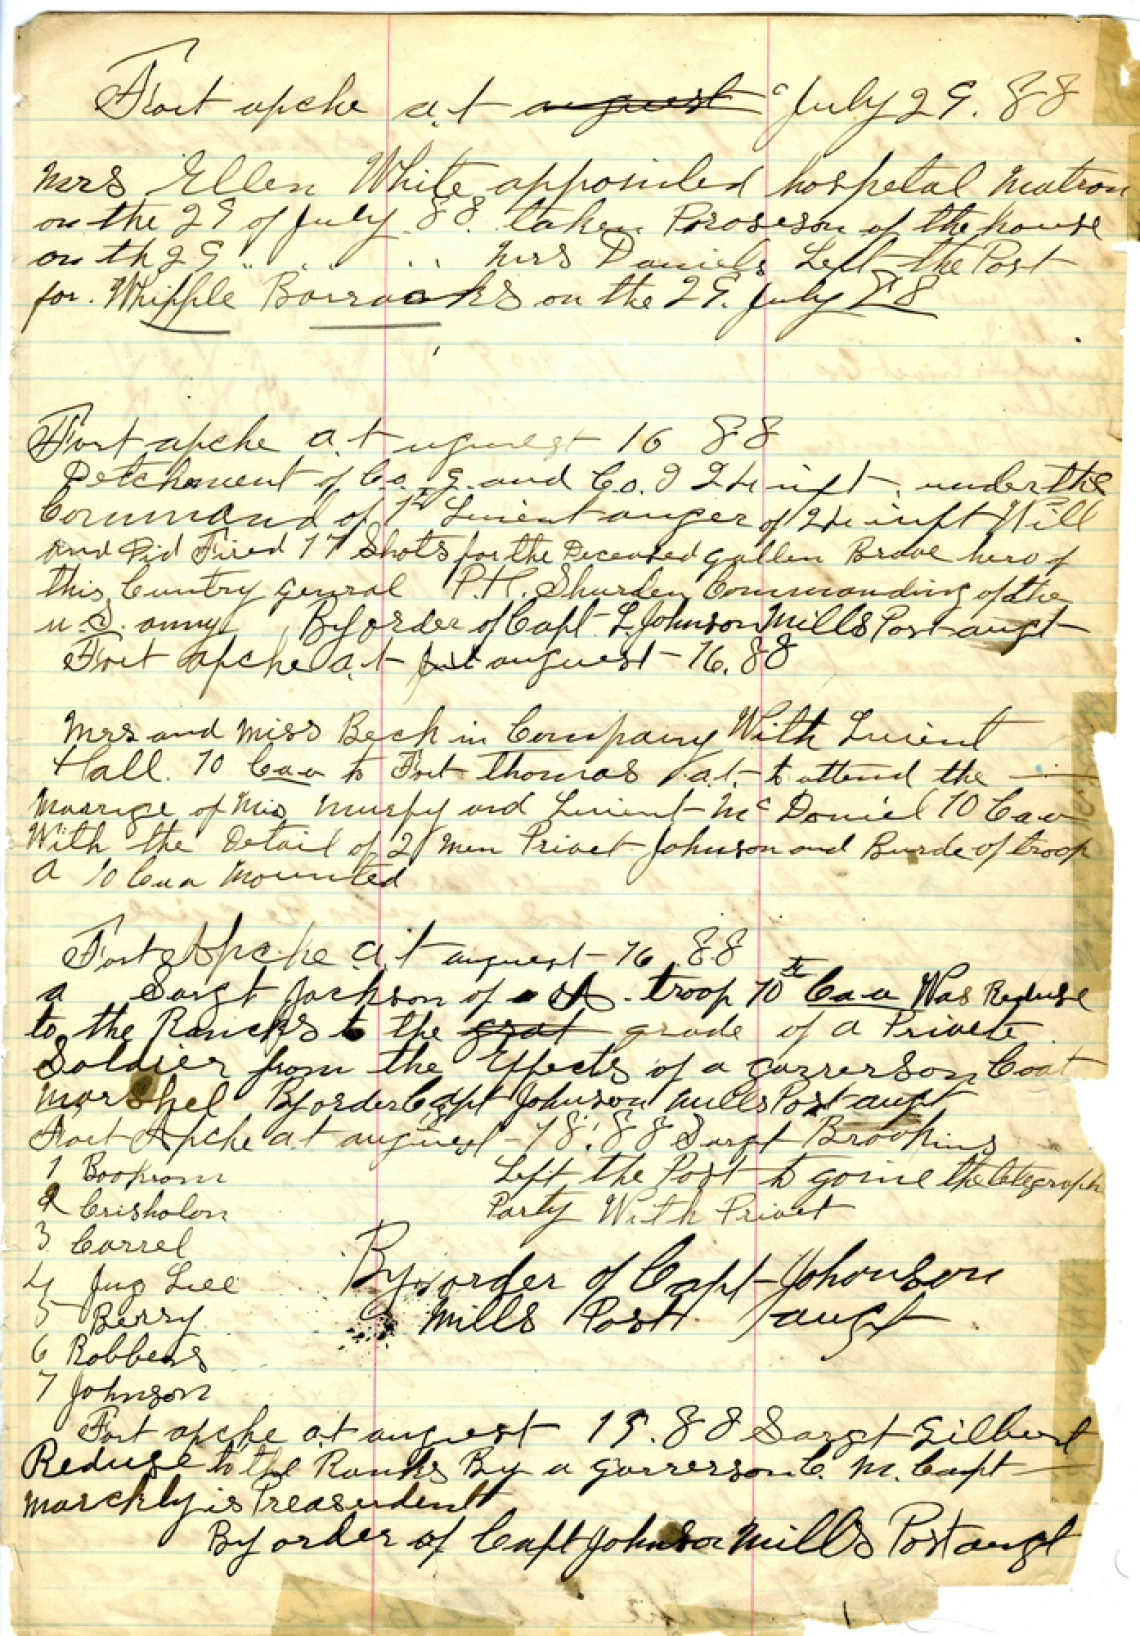 Fort apche a.t august July 29. 88
Mrs Ellen White appointed hospetal Matron
on the 29 of July 88. taken Posseson of the house
on th 29 " " " Mrs Daniels Left the Post
for. Whipple Barracks on the 29. July 88
Fort apche a.t uguest 16 88
Detchment of Co. G. and Co. I 24 inft. under the
Command of 1st Luient auger of 24 inft Will
and Did Fired 17 Shots for the Deceased gallen Brave hero of
this Cuntry genral P.H. Shurden Commanding of the
u.S. army By order of Capt L. Johnson Mills Post augt
Fort apche a.t august 16. 88
Mrs and Miss Beck in Company With Luient
Hall. 10 Cav to Fort thomas a.t. to attend the
Marrige of Mis Murfy and Luient Mc Doniel 10 Cav
With the Detail of 2 Men Privet Johnson and Burde of troop
A 10 Cav Mounted
Fort Apche a.t august 16. 88
a Sargt Jackson of troop 10th Cav Was Reduse
to the Rancks to the grat grade of a Private
Soldier from the Effects of a garrerson Coat
marshel By order Capt Johnson Mills Post augt
Fort Apche a.t august 18. 88 Sargt Brookins
1 Bookrom Left the Post to goine the telegraph
2 Crisholon Party With Privet
3 Carrel
4 Jug Lee By order of Capt Johonson
5 Berry Mills Post augt
6 Robbens
7 Johnson
Fort apche a.t august 19. 88 Sargt Gilbert
Reduse to the Ranks By a garrerson C. M. Capt
Marckly is Preasudent
By order of Capt Johnson Mills Post augt